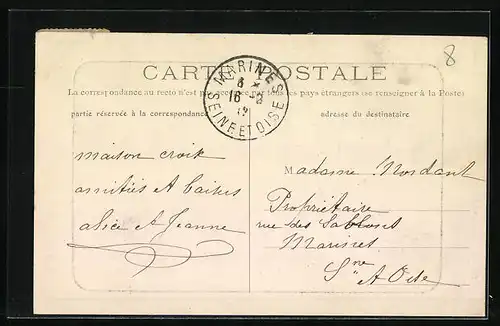 8
CARTE POSTALE
MARINES
6 *
16 - 8
SEINE ET OISE
La correspondance au recto n'est pas acceptée par tous les pays étrangers (se renseigner à la Poste)
partie réservée à la correspondance
adresse du destinataire
maison croix
amitiés et baisers
alice et Jeanne
Madame Mordant
Propriétaire
rue des Sablons
Marines
Sne et Oise